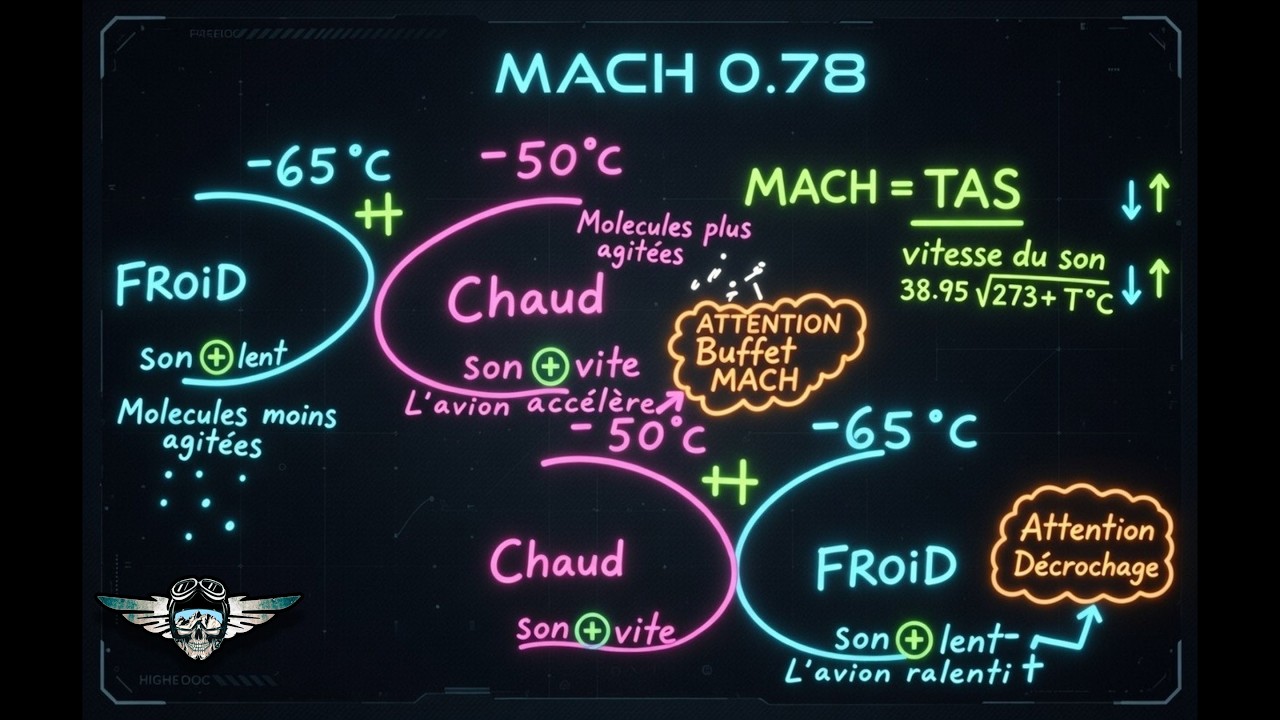 MACH 0.78
-65°C
-50°C
MACH = TAS
↓↑
Molecules plus
agitées
vitesse du son
38.95 √273 + T°C ↓↑
FROiD
Chaud
ATTENTION
Buffet
MACH
son + lent
son + vite
L'avion accélère
Molecules moins
agitées
- 50°C
-65°C
Chaud
FROiD
Attention
Décrochage
son + vite
son + lent
L'avion ralenti